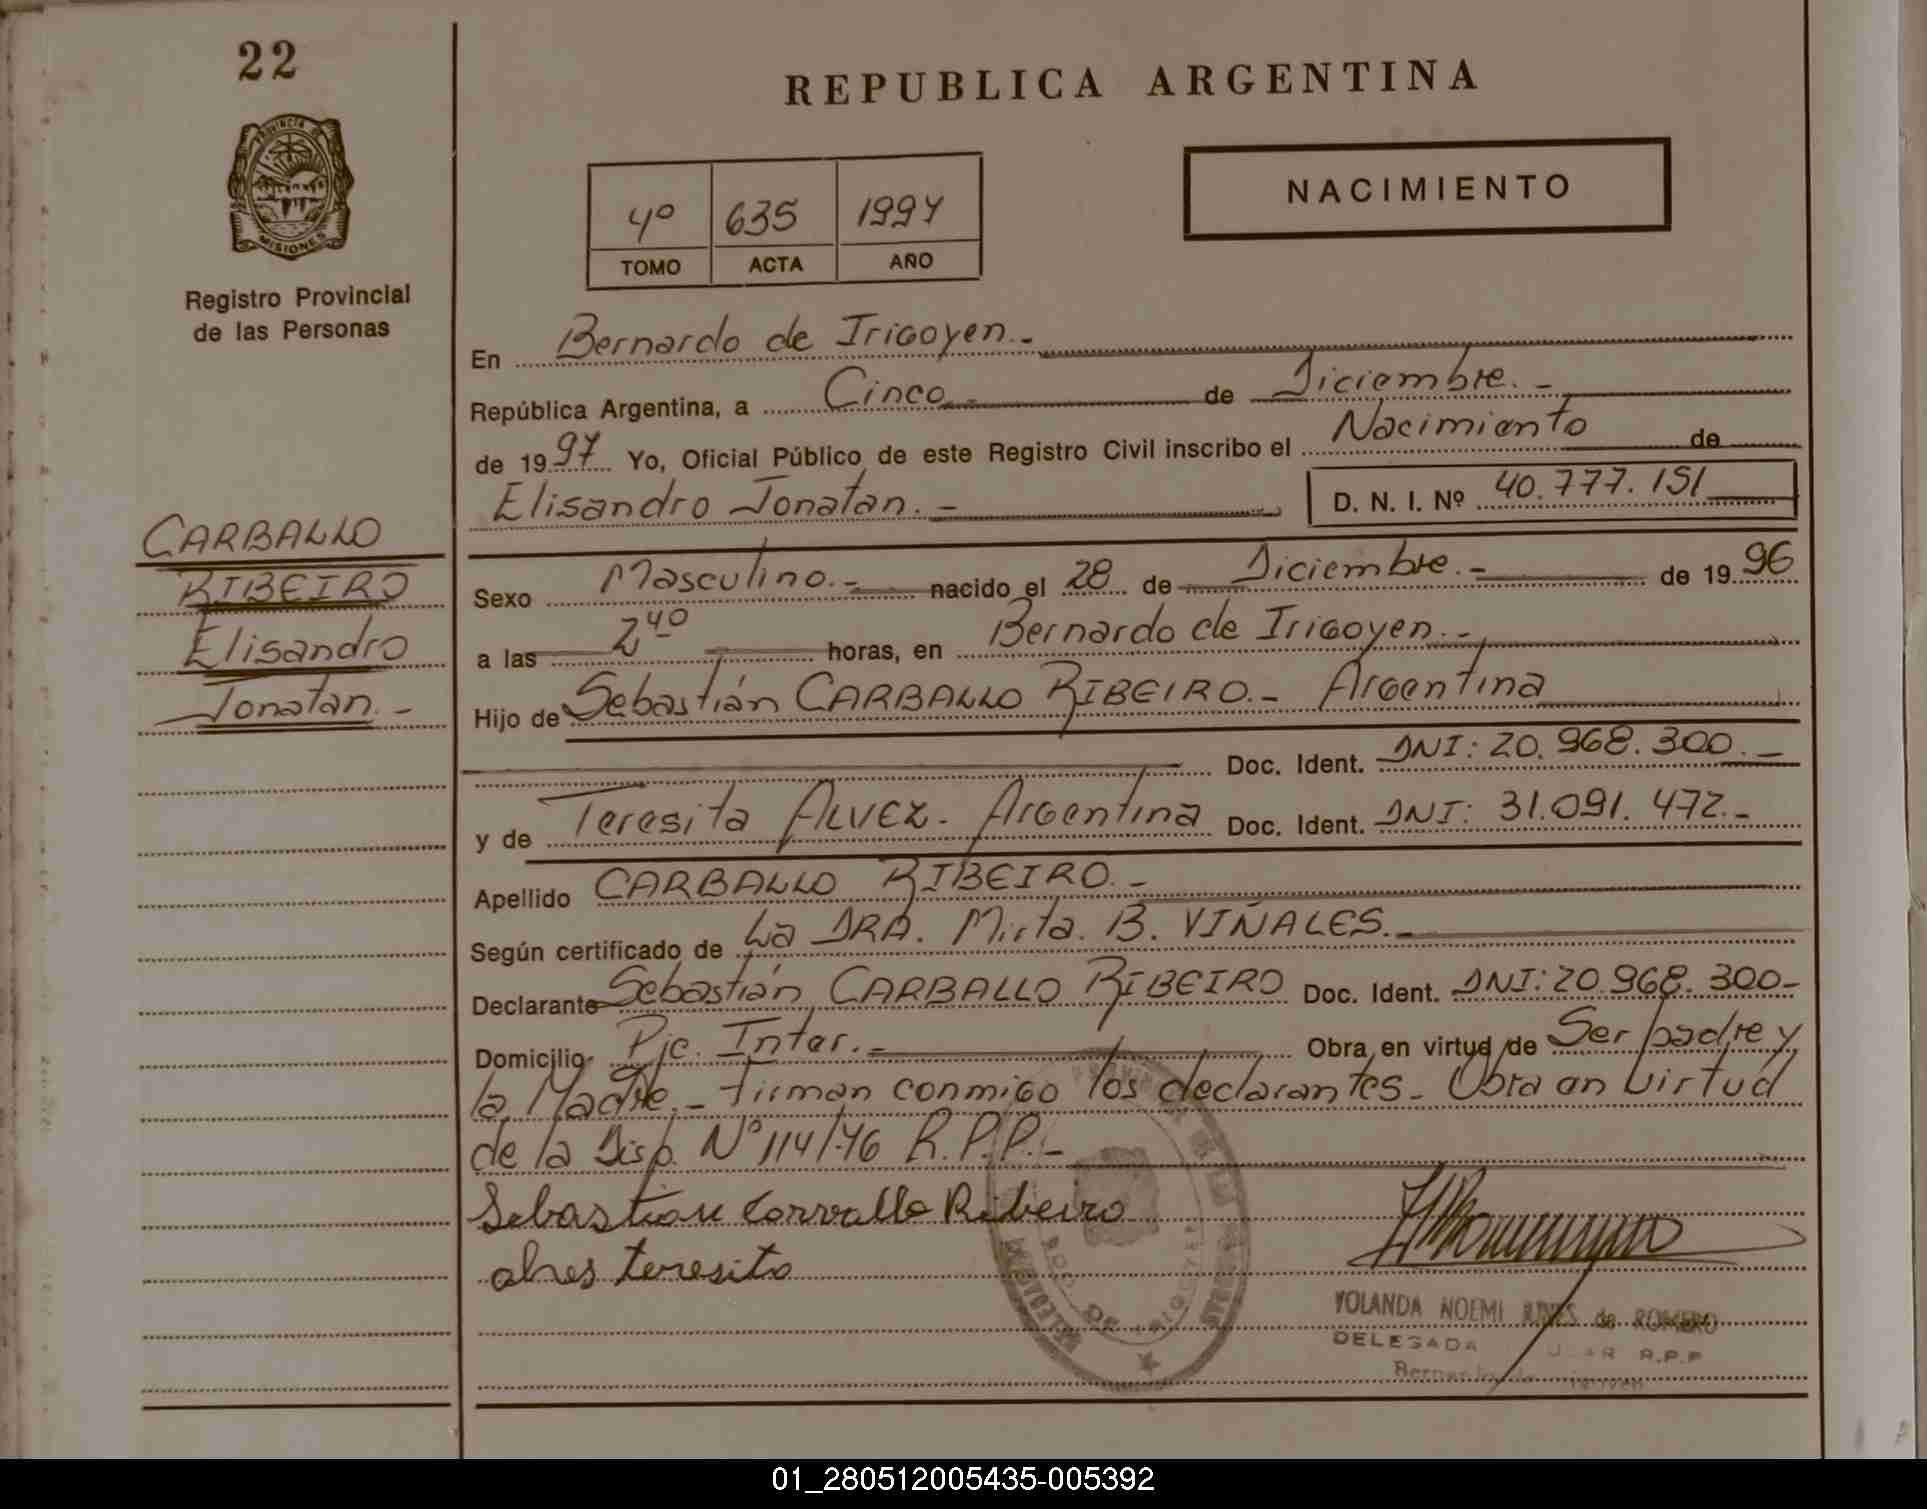 22
REPUBLICA ARGENTINA
PROVINCIA DE
MISIONES
Registro Provincial
de las Personas
4º 635 1997
TOMO ACTA AÑO
NACIMIENTO
En Bernardo de Irigoyen.-
República Argentina, a Cinco.- de Diciembre.-
de 1997 Yo, Oficial Público de este Registro Civil inscribo el Nacimiento de
Elisandro Jonatan.- D. N. I. Nº 40.777.151
CARBALLO
RIBEIRO
Elisandro
Jonatan.-
Sexo Masculino.- nacido el 28 de Diciembre.- de 1996
a las 2 40 horas, en Bernardo de Irigoyen.-
Hijo de Sebastián CARBALLO RIBEIRO.- Argentina
Doc. Ident. DNI: 20.968.300.-
y de Teresita ALVEZ.- Argentina Doc. Ident. DNI: 31.091.472.-
Apellido CARBALLO RIBEIRO.-
Según certificado de La DRA. Mirta. B. VIÑALES.-
Declarante Sebastián CARBALLO RIBEIRO Doc. Ident. DNI: 20.968.300-
Domicilio Pje. Inter.- Obra en virtud de Ser padre y
la Madre.- Firman conmigo los declarantes.- Obra en virtud
de la Disp. Nº 114/76 R.P.P.-
Sebastian Corvallo Ribeiro
alves teresita
YOLANDA NOEMI de ROMERO
DELEGADA R.P.P
Bernardo de Irigoyen
01_280512005435-005392